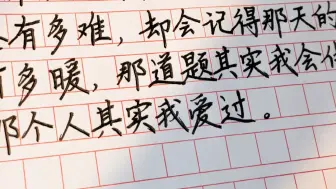 有多难，却会记得那天的
有多暖，那道题其实我会做
那个人其实我爱过。